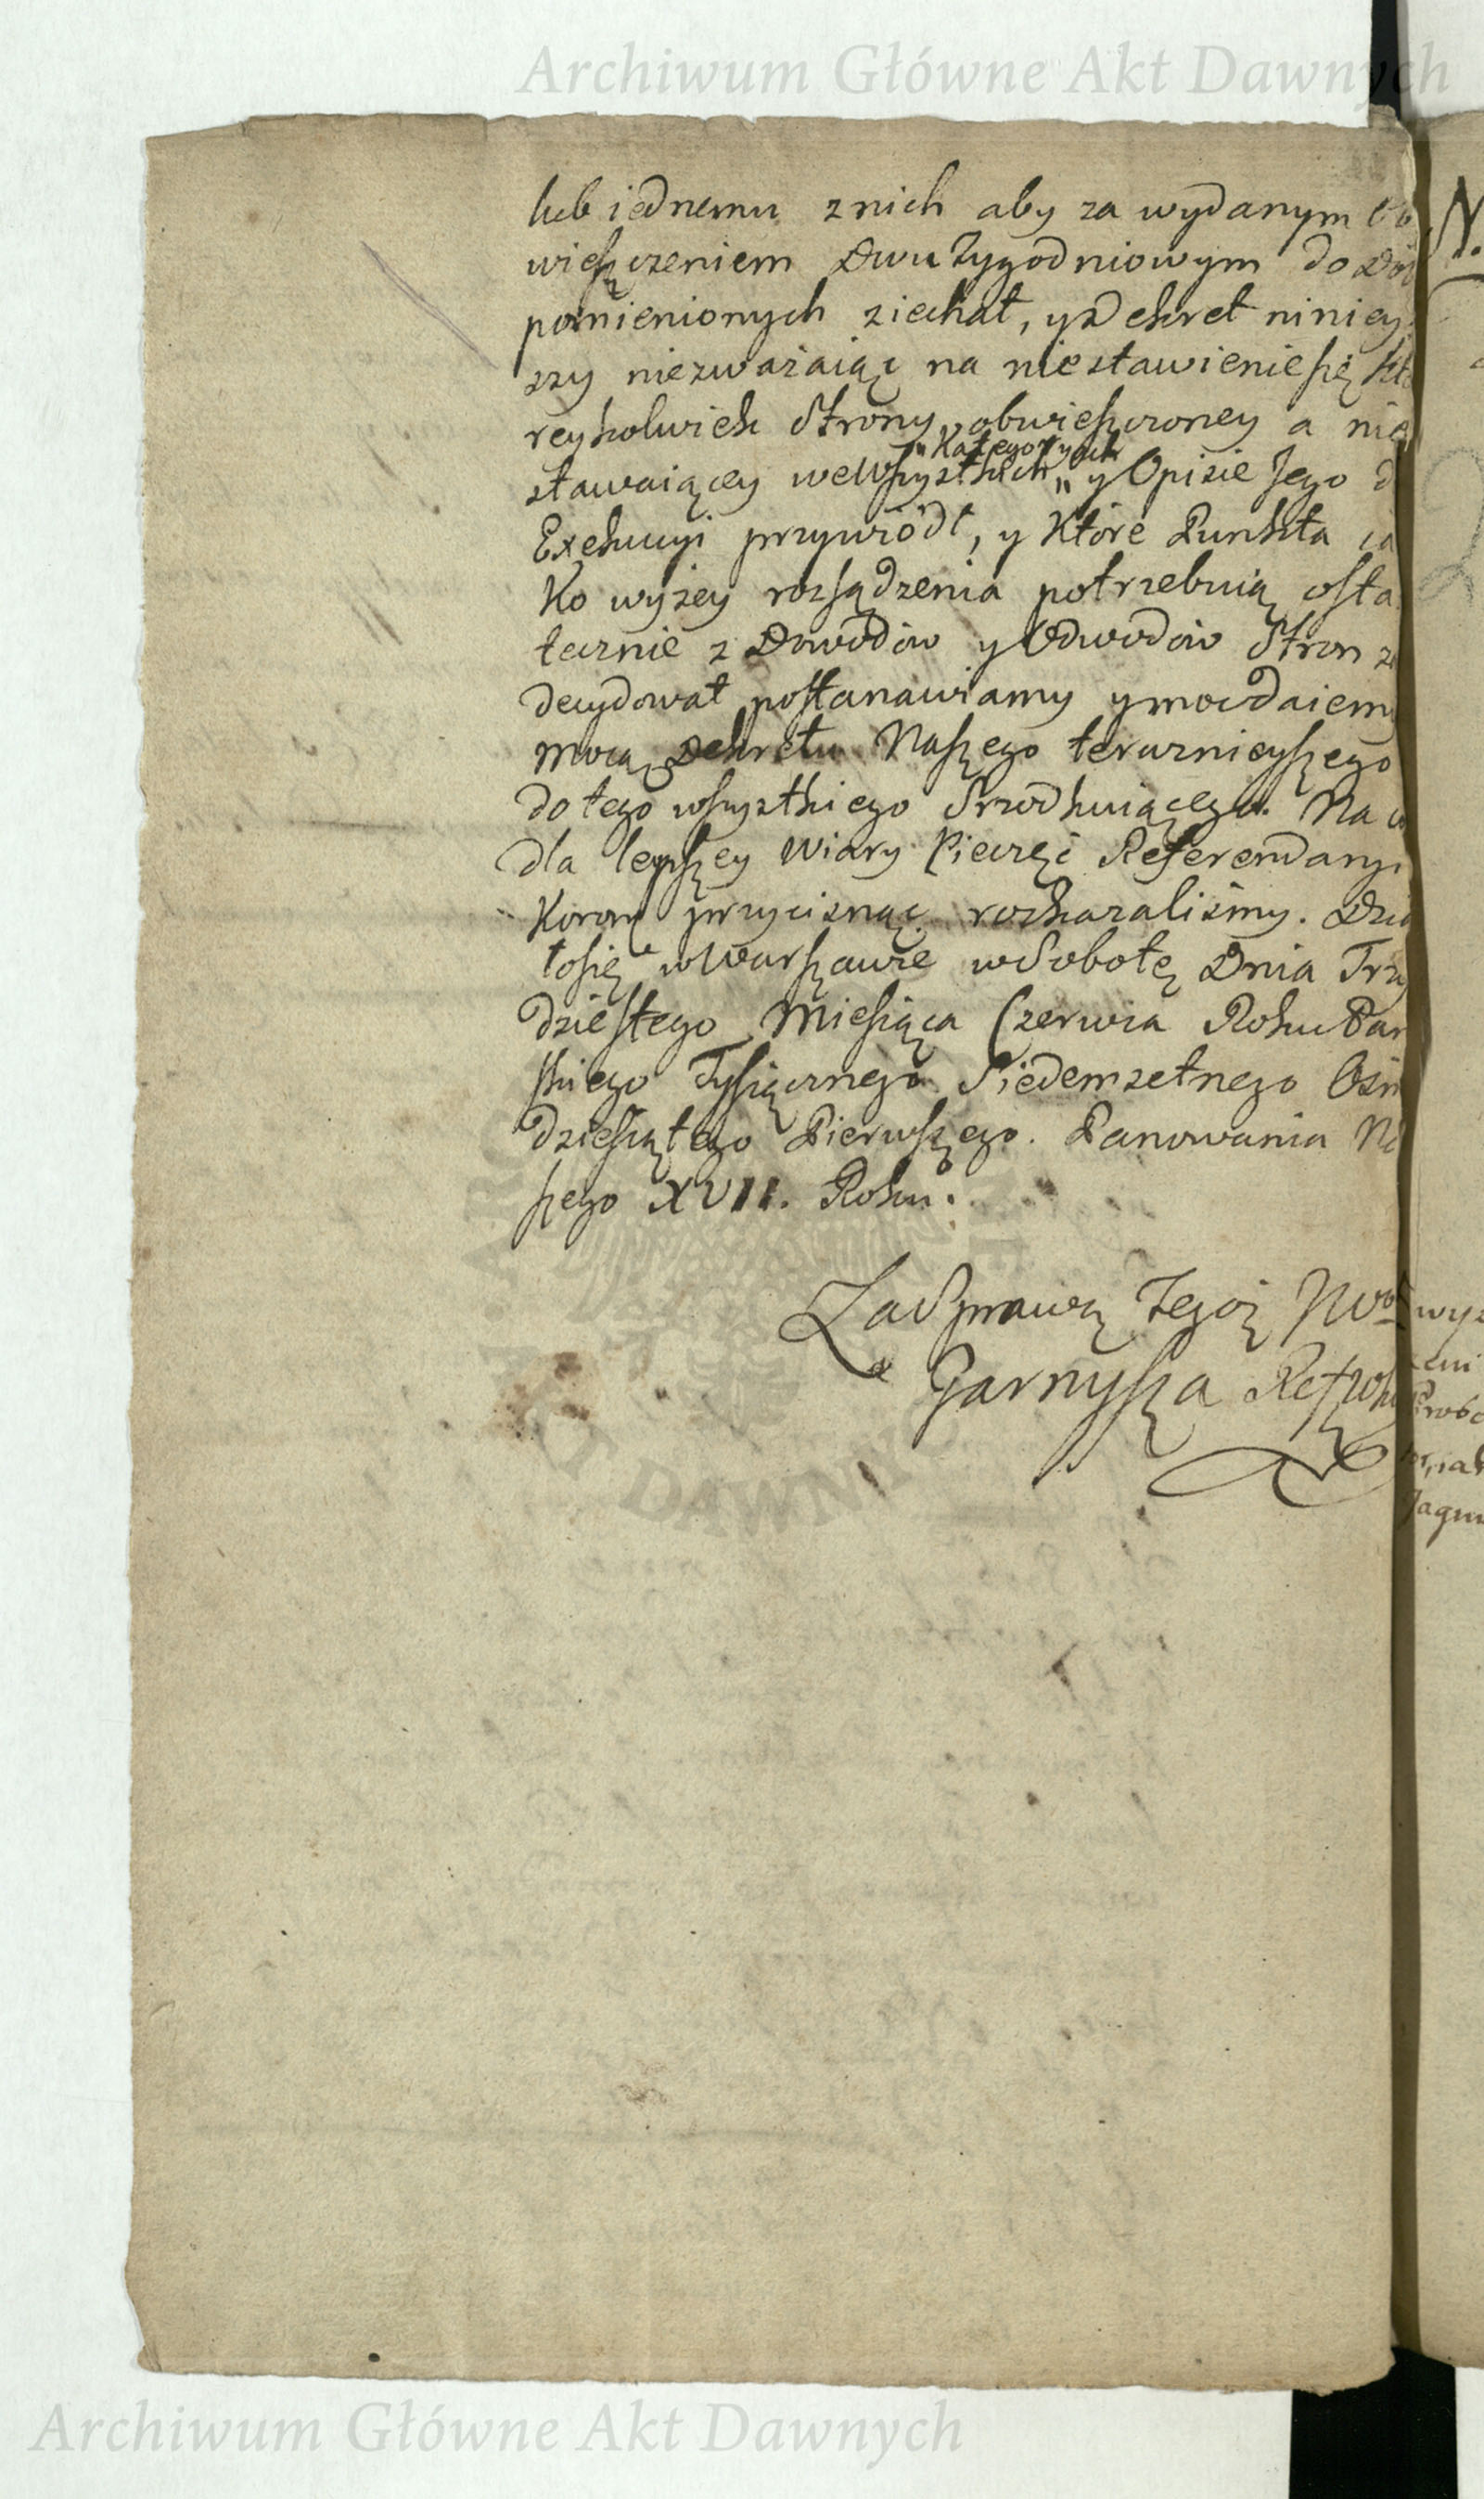 Archiwum Główne Akt Dawnych
lub iednemu z nich aby za wydanym Ob
wieszczeniem Dwu Tygodniowym do Dób
pomienionych ziechał, y Dekret niniey
szy niezważaiąc na niestawienie się któ
reykolwiek Strony obwieszczoney a nie
„Kategoryach
stawaiącey we Wszystkich „ y Opisie Jego d
Exekucyi przywiódł, y Które Punkta ia
Ko wyżey rozsądzenia potrzebuią osta
tecznie z Dowodów y Odwodów Stron
decydował postanawiamy y moc daiemy
mocą Dekretu Naszego teraznieyszego
do tego wszystkiego Srzodkuiącego. Na
dla lepszey Wiary Pieczęć Referendaryi
Koronē przycisnąć rozkazaliśmy. Dzia
ło się w Warszawie w Sobotę Dnia Trzy
dziestego Miesiąca Czerwca Roku Pań
skiego Tysiącznego Siedemsetnego Ośm
dziesiątego Pierwszego. Panowania Na
szego XVII. Roku.
Za Sprawą Tegoż Wo
Garnysza Ref
DAWNYCH
Archiwum Główne Akt Dawnych